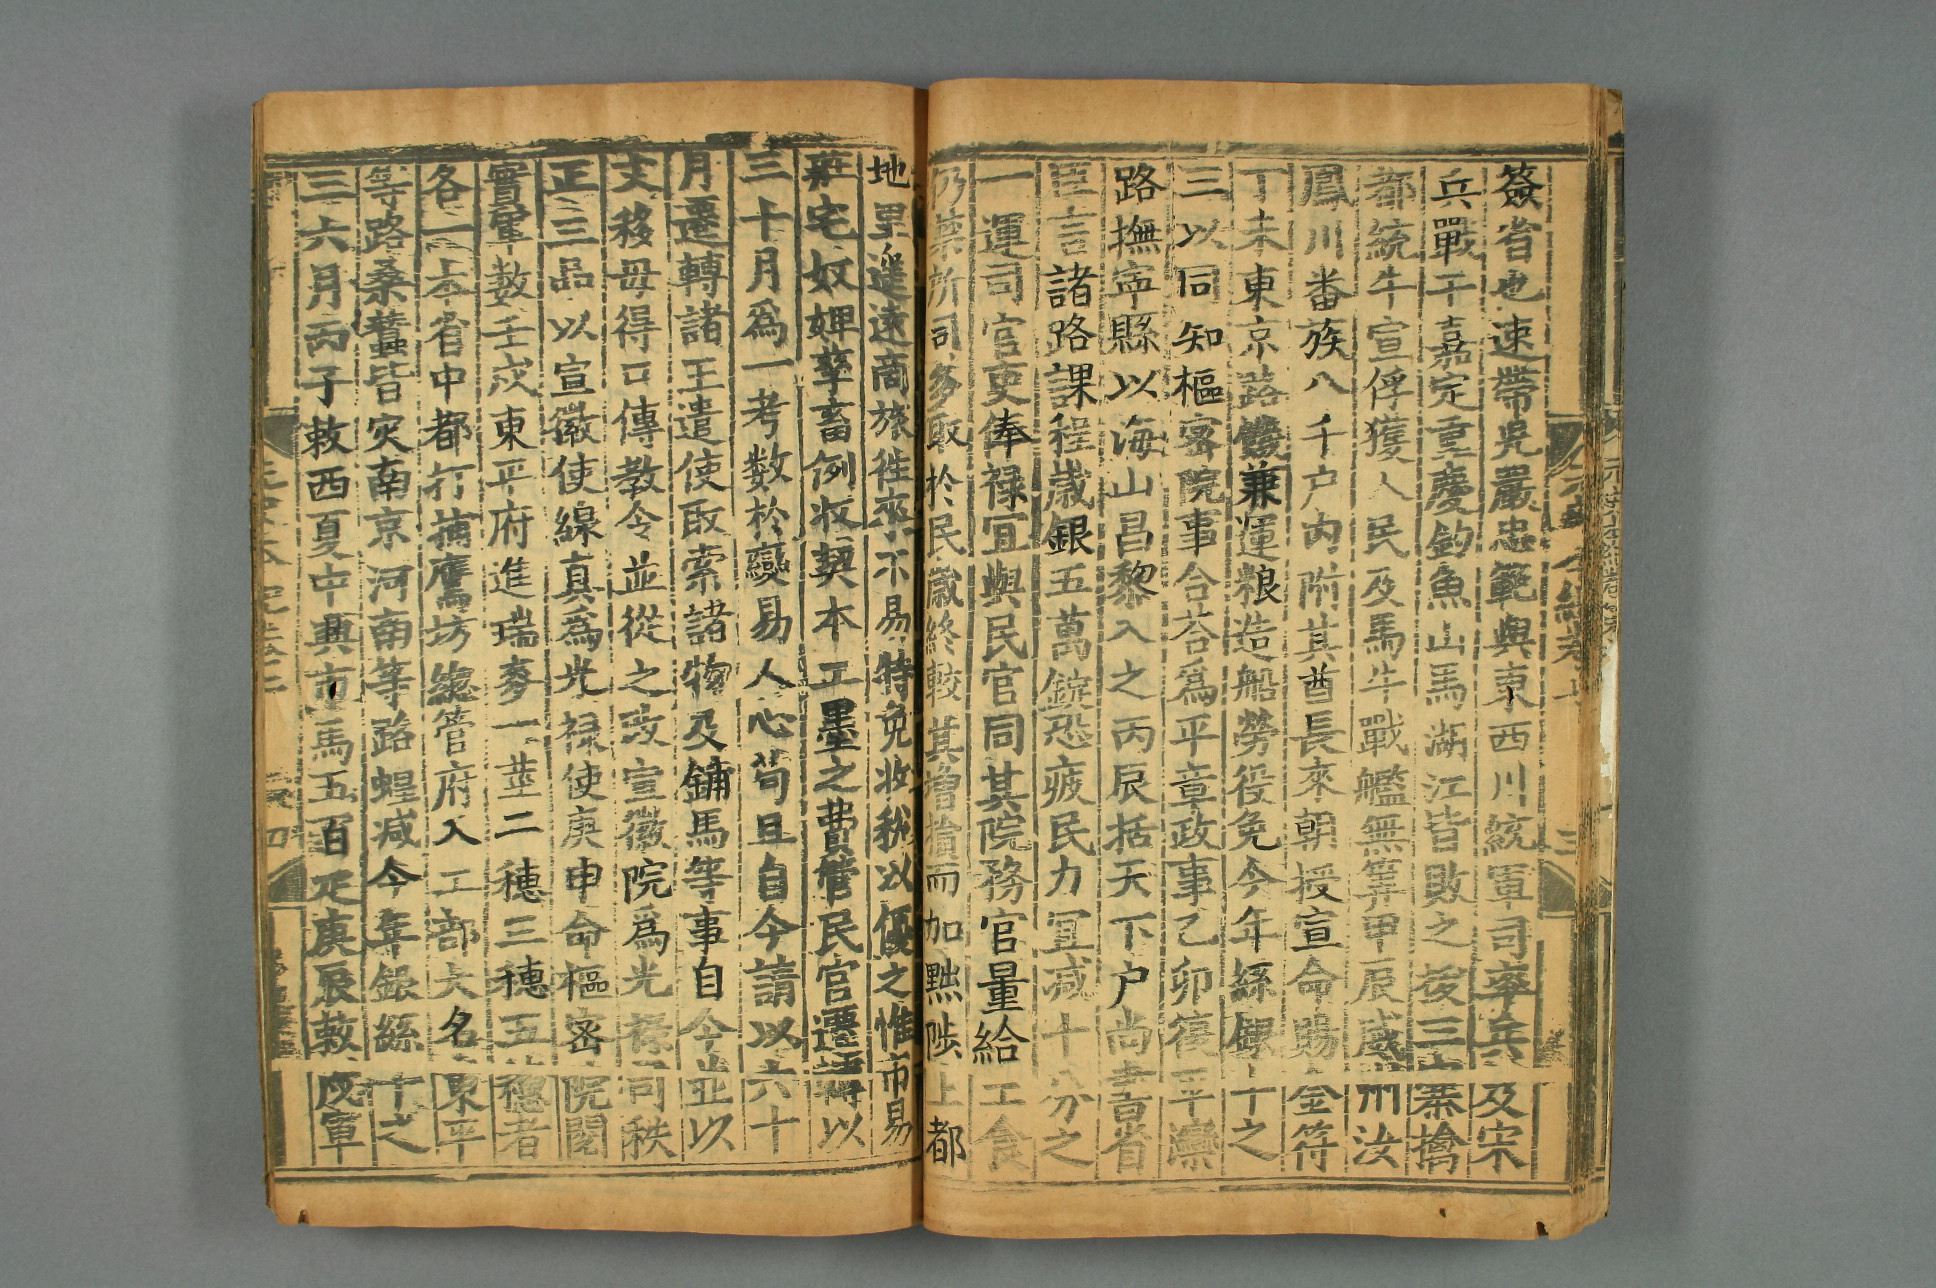 簽省也速帶兒嚴忠範與東西川統軍司率兵及宋
兵戰于嘉定重慶釣魚山馬湖江皆敗之拔三寨擒
都統牛宣俘獲人民及馬牛戰艦無筭甲辰威州汝
鳳川番族八千户內附其酋長來朝授宣命賜金符
丁未東京路饑兼運粮造船勞役免今年絲銀十之
三以同知樞密院事合荅爲平章政事乙卯復平灤
路撫寧縣以海山昌黎入之丙辰括天下户尚書省
臣言諸路課程歲銀五萬錠恐疲民力冝减十分之
一運司官吏俸禄冝與民官同其院務官量給工食
仍禁所司多取於民歲終較其增損而加黜陟上都
地里遥遠商旅徃來不易特免收稅以優之惟市易
莊宅奴婢孳畜例收契本工墨之費管民官遷轉以
三十月爲一考数於變易人心苟且自今請以六十
月遷轉諸王遣使取索諸物及鋪馬等事自今並以
文移毋得口傳教令並從之改宣徽院爲光禄司秩
正三品以宣徽使線真爲光禄使庚申命樞密院閱
實軍數壬戍東平府進瑞麥一莖二穗三穗五穗者
各一本省中都打捕鷹坊緫管府入工部大名東平
等路桑蠶皆灾南京河南等路蝗减今年銀絲十之
三六月丙子敕西夏中興市馬五百疋庚辰敕戍軍
三
四